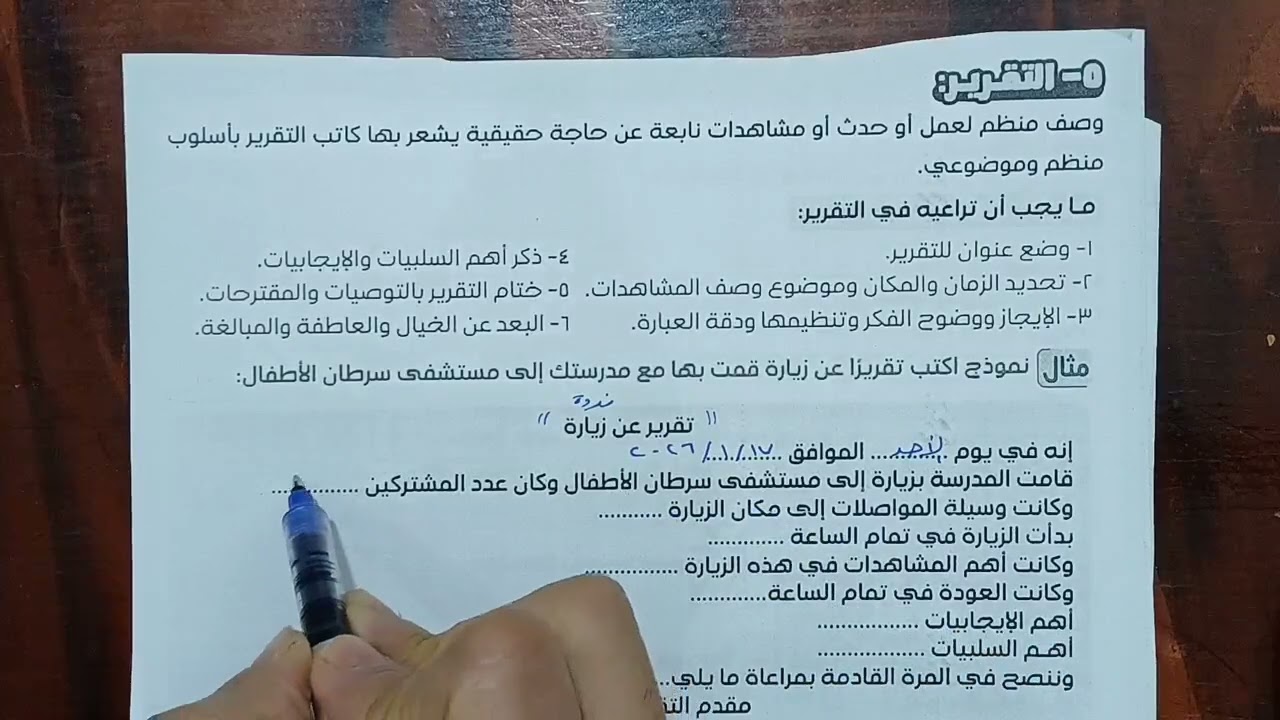 ٥- التقرير:
وصف منظم لعمل أو حدث أو مشاهدات نابعة عن حاجة حقيقية يشعر بها كاتب التقرير بأسلوب
منظم وموضوعي.
ما يجب أن تراعيه في التقرير:
١- وضع عنوان للتقرير.
٢- تحديد الزمان والمكان وموضوع وصف المشاهدات.
٣- الإيجاز ووضوح الفكر وتنظيمها ودقة العبارة.
٤- ذكر أهم السلبيات والإيجابيات.
٥- ختام التقرير بالتوصيات والمقترحات.
٦- البعد عن الخيال والعاطفة والمبالغة.
مثال نموذج اكتب تقريرًا عن زيارة قمت بها مع مدرستك إلى مستشفى سرطان الأطفال:
ندوة
" تقرير عن زيارة "
إنه في يوم الأحد... الموافق ١٧/١/٢٠٢٦
قامت المدرسة بزيارة إلى مستشفى سرطان الأطفال وكان عدد المشتركين ..............
وكانت وسيلة المواصلات إلى مكان الزيارة ...........
بدأت الزيارة في تمام الساعة .............
وكانت أهم المشاهدات في هذه الزيارة ................
وكانت العودة في تمام الساعة.............
أهم الإيجابيات .................
أهم السلبيات ..................
وننصح في المرة القادمة بمراعاة ما يلي..
مقدم